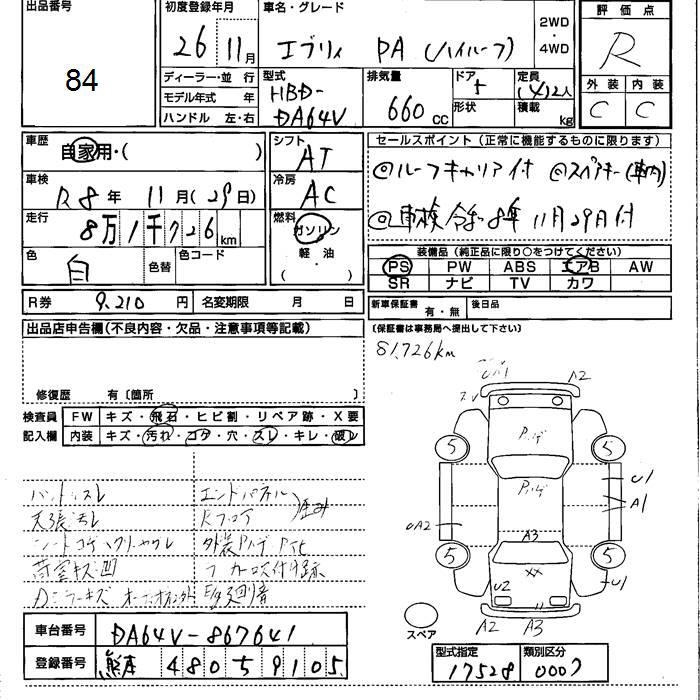 出品番号
84
初度登録年月
26年 11月
車名・グレード
エブリィ PA (ハイルーフ)
2WD
・
4WD
評価点
R
外装 内装
C C
ディーラー・並行
モデル年式 年
ハンドル 左・右
型式
HBD-
DA64V
排気量
660 cc
ドア
5
形状
定員
(4)2人
積載
kg
車歴
自家用・( )
シフト
AT
セールスポイント (正常に機能するものに限ります)
◎ルーフキャリア付 ◎スペアキー(車内)
◎車検令和8年11月29日付
車検
R8年 11月(29日)
冷房
AC
走行
8万1千726km
燃料
ガソリン
・
軽油
( )
色
白
色替
色コード
装備品 (純正品に限り○をつけてください)
PS PW ABS エアB AW
SR ナビ TV カワ
R券 9,210円 名変期限 月 日
新車保証書 有・無
後日品
(保証書は事務局へ提出して下さい)
出品店申告欄(不良内容・欠品・注意事項等記載)
81,726km
修復歴 有〔箇所 〕
検査員
記入欄
FW キズ・飛石・ヒビ割・リペア跡・X要
内装 キズ・汚れ・コゲ・穴・スレ・キレ・破レ
ハンドルスレ
天張汚レ
エンドパネル
歪み
荷室キズ凹
U1
A2
5
5
5
5
A3
XX
U2
U1
A1
UA2
U1
A2
A3
スペア
車台番号 DA64V-867641
登録番号 熊本 480 う 9105
型式指定
17528
類別区分
0007